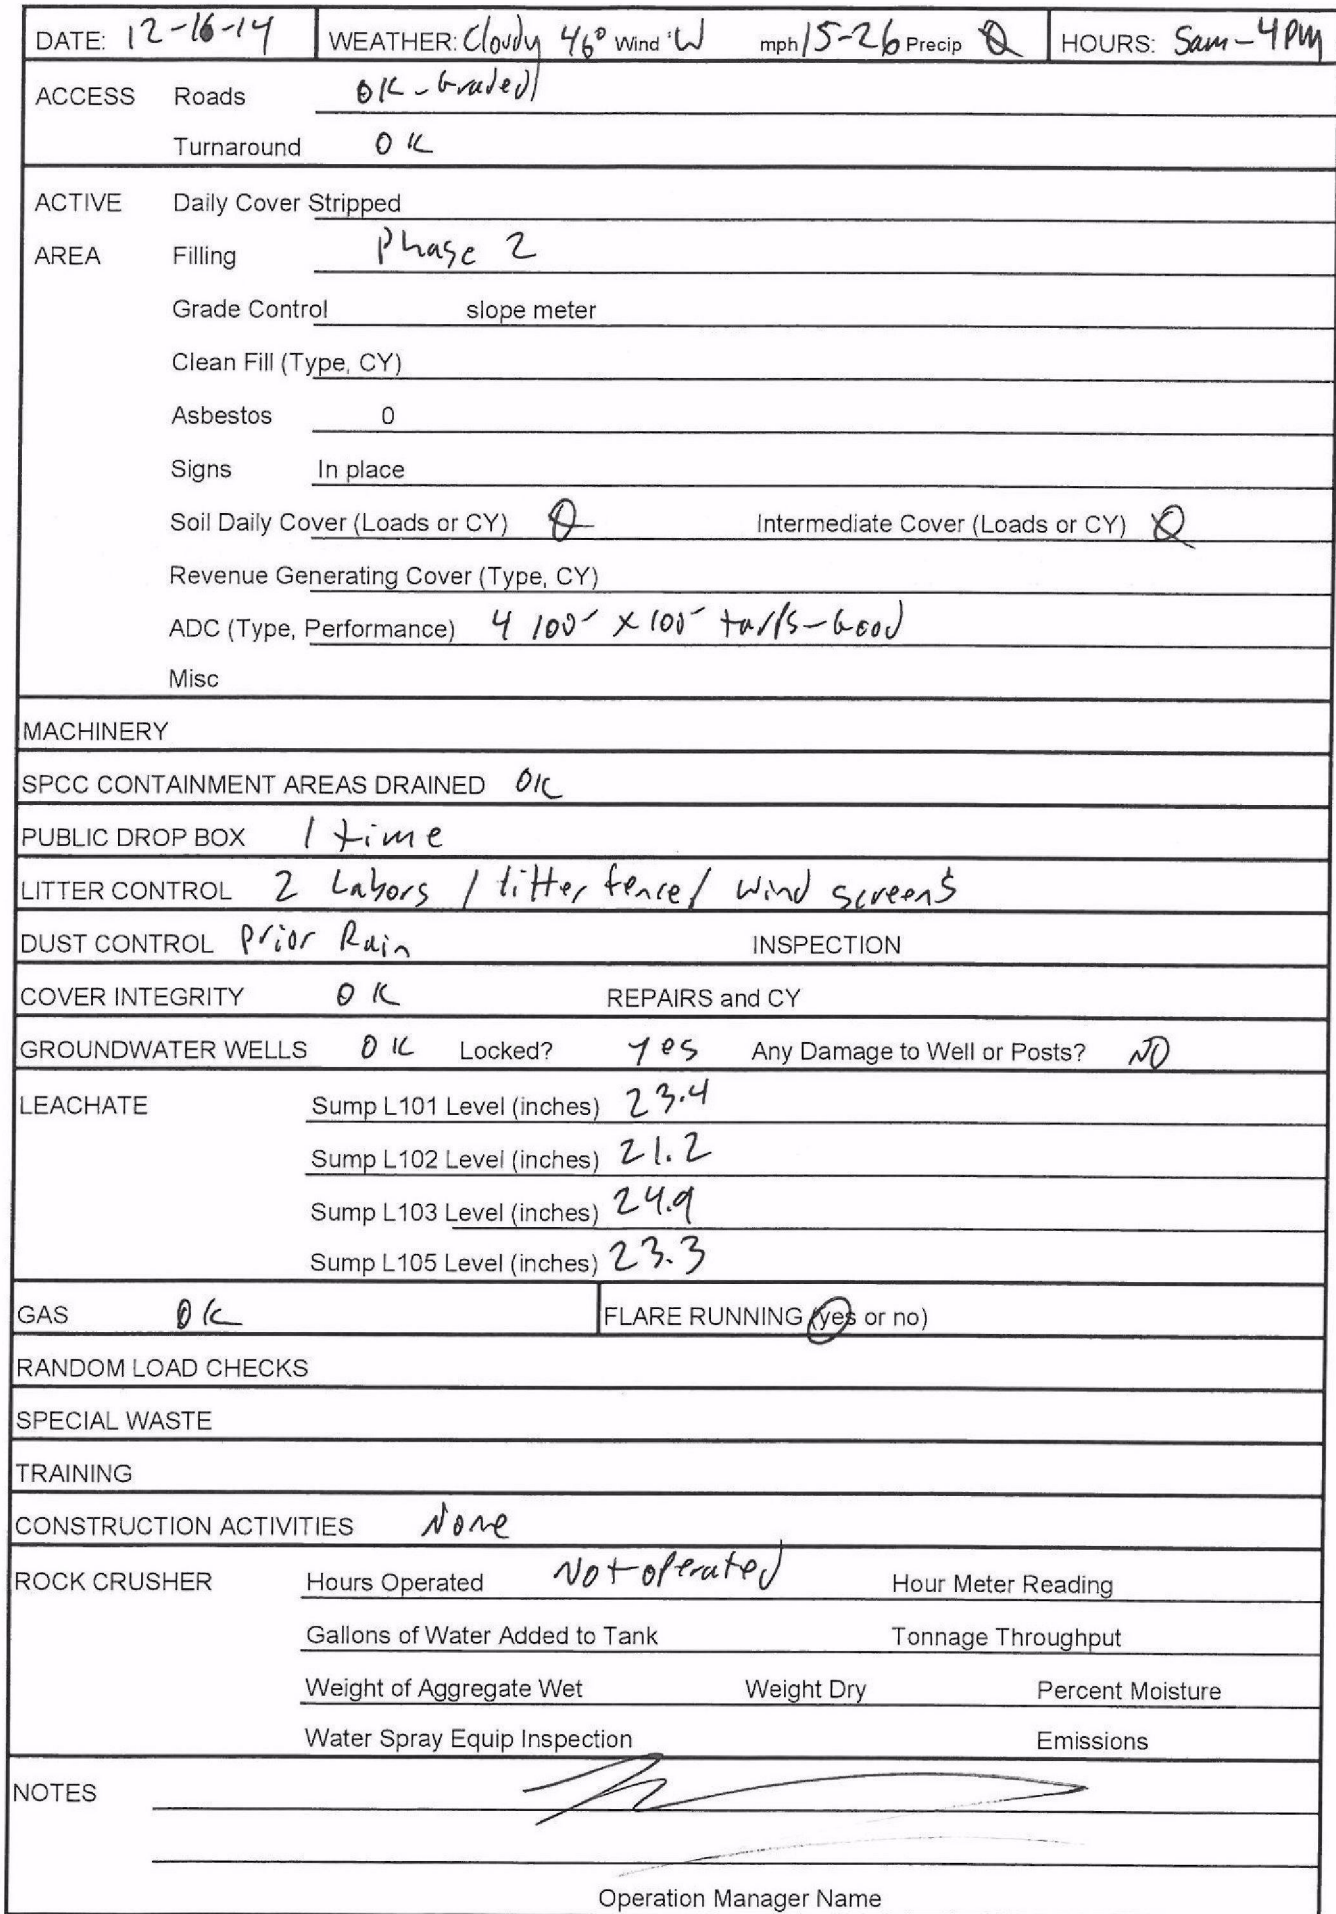 DATE: 12-16-14 WEATHER: Cloudy 46° Wind W mph 15-26 Precip 0 HOURS: 5am-4PM
ACCESS Roads OK-Graded
Turnaround OK
ACTIVE Daily Cover Stripped
AREA Filling Phase 2
Grade Control slope meter
Clean Fill (Type, CY)
Asbestos 0
Signs In place
Soil Daily Cover (Loads or CY) 0 Intermediate Cover (Loads or CY) 0
Revenue Generating Cover (Type, CY)
ADC (Type, Performance) 4 100' x 100' tarps-Good
Misc
MACHINERY
SPCC CONTAINMENT AREAS DRAINED OK
PUBLIC DROP BOX 1 time
LITTER CONTROL 2 Labors / litter fence / wind screens
DUST CONTROL Prior Rain INSPECTION
COVER INTEGRITY OK REPAIRS and CY
GROUNDWATER WELLS OK Locked? yes Any Damage to Well or Posts? NO
LEACHATE Sump L101 Level (inches) 23.4
Sump L102 Level (inches) 21.2
Sump L103 Level (inches) 24.9
Sump L105 Level (inches) 23.3
GAS OK FLARE RUNNING (yes or no)
RANDOM LOAD CHECKS
SPECIAL WASTE
TRAINING
CONSTRUCTION ACTIVITIES None
ROCK CRUSHER Hours Operated Not operated Hour Meter Reading
Gallons of Water Added to Tank Tonnage Throughput
Weight of Aggregate Wet Weight Dry Percent Moisture
Water Spray Equip Inspection Emissions
NOTES
Operation Manager Name